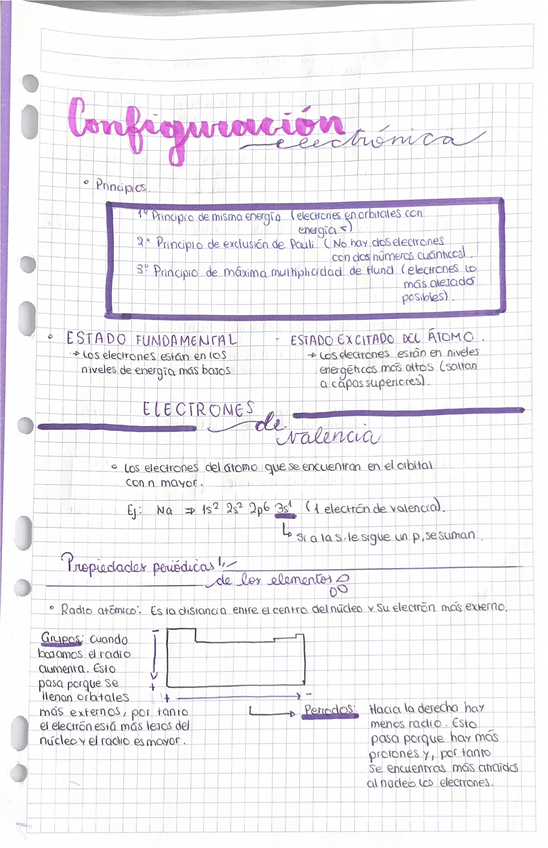 Configuración
electrónica
° Principios.
1º Principio de misma energía (electrones en orbitales con
energía =)
2º Principio de exclusión de Pauli (No hay dos electrones
con dos números cuánticos).
3º Principio de máxima multiplicidad de Hund (electrones lo
más alejado
posibles).
° ESTADO FUNDAMENTAL
→ Los electrones están en los
niveles de energía más bajos
- ESTADO EXCITADO DEL ÁTOMO.
→ Los electrones están en niveles
energéticos más altos (saltan
a capas superiores).
ELECTRONES
de
valencia
° Los electrones del átomo que se encuentran en el orbital
con n mayor.
Ej: Na ⇒ 1s² 2s² 2p6 3s¹ (1 electrón de valencia).
↳ Si a la s, le sigue un p, se suman.
Propiedades periódicas
de los elementos
° Radio atómico: Es la distancia entre el centro del núcleo y su electrón más externo.
Grupos: cuando
bajamos el radio
aumenta. Esto
pasa porque se
llenan orbitales
más externos, por tanto
el electrón está más lejos del
núcleo y el radio es mayor.
-
+
+ → -
Periodos: Hacia la derecha hay
menos radio. Esto
pasa porque hay más
protones y, por tanto
se encuentras más atraídos
al núcleo los electrones.